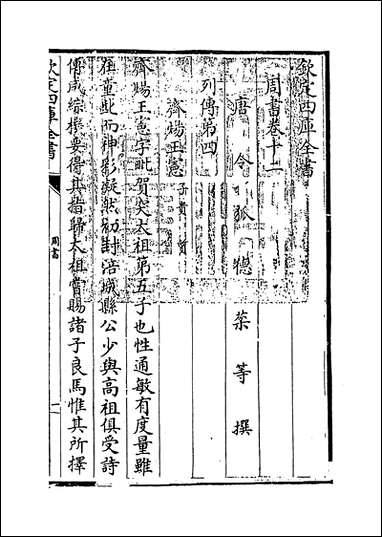 欽定四庫全書
周書卷十二
唐令狐德棻等撰
列傳第四
齊煬王憲 子貴 質
齊煬王憲字毗賀突太祖第五子也性通敏有度量雖
在童齔而神彩嶷然初封涪城縣公少與高祖俱受詩
傳咸綜機要得其指歸太祖嘗賜諸子良馬惟其所擇
欽定四庫全書
周書
一